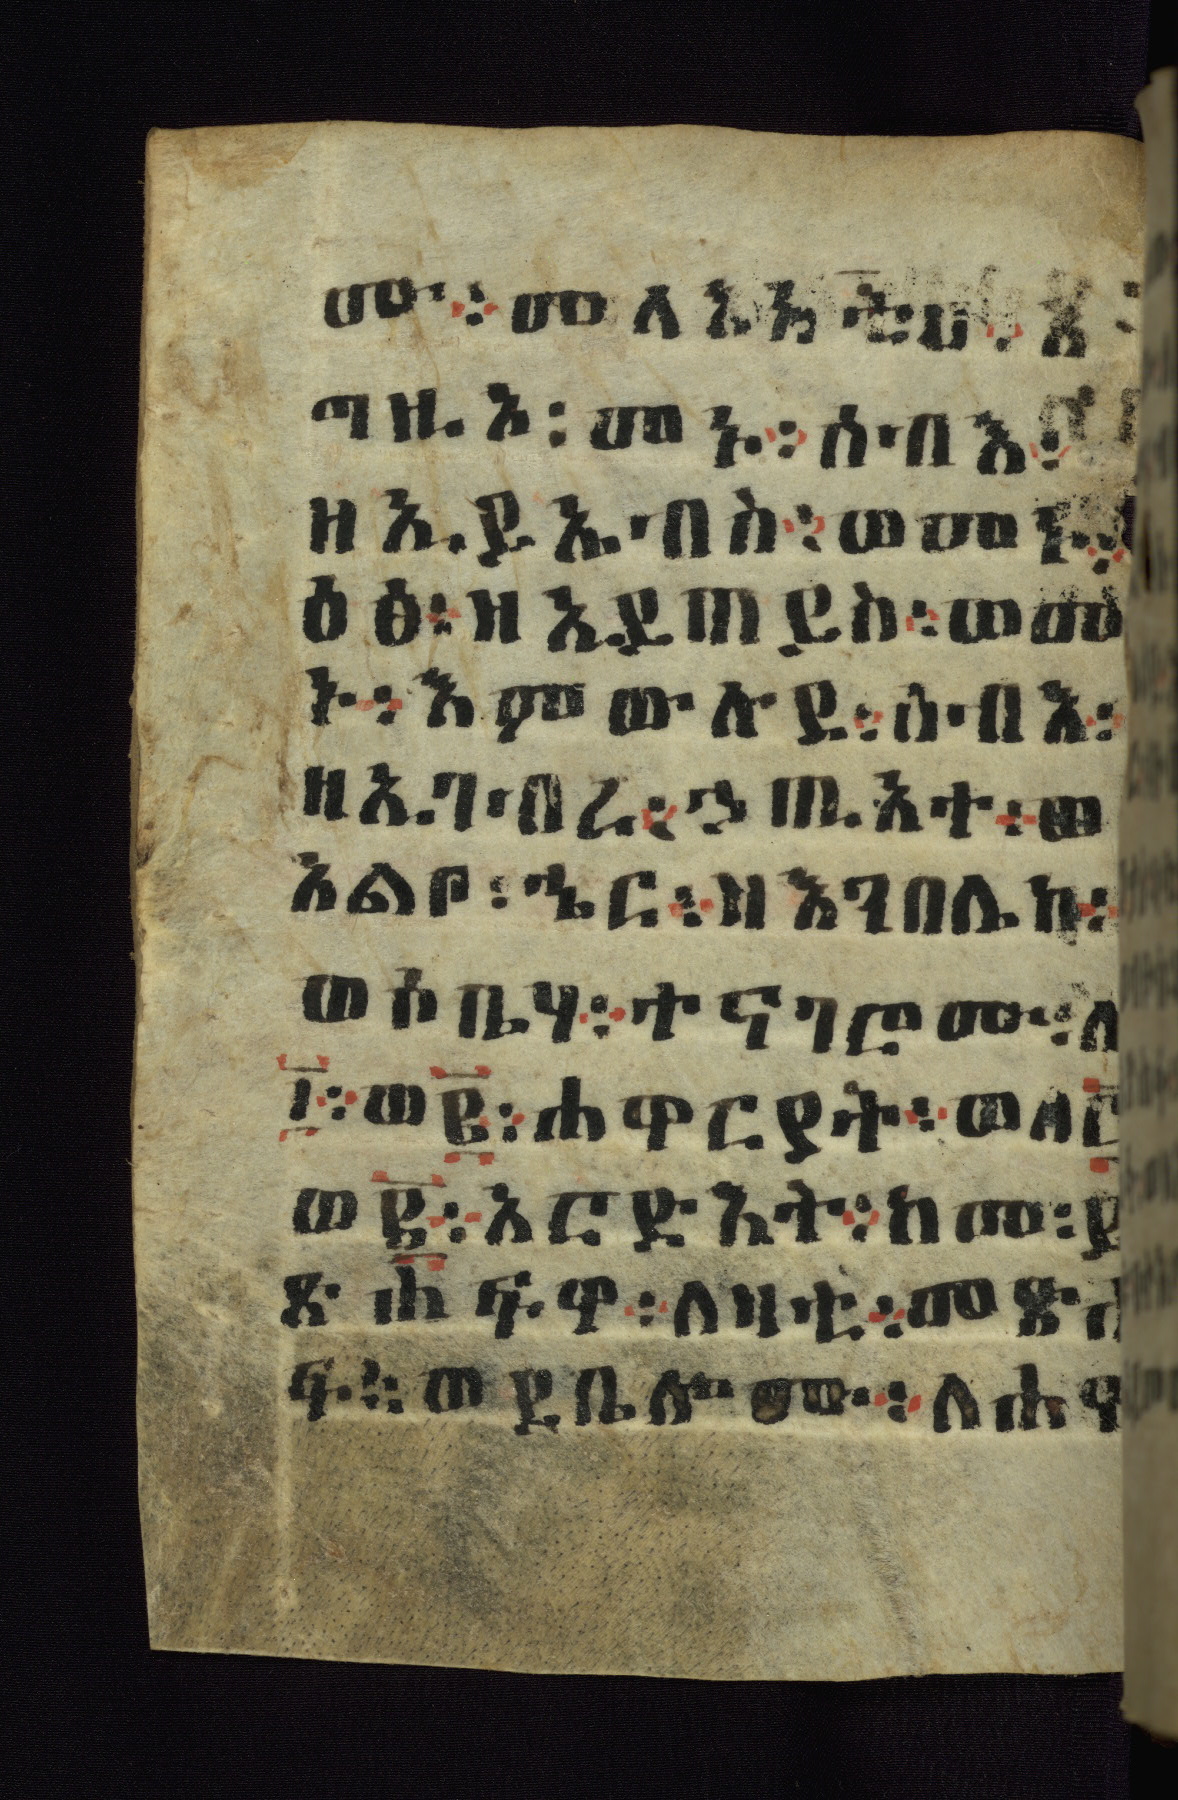 ሙ፡ መላእክት፡
ግዚአ፡ መኑ፡ ሰብእ፡
ዘኢይኤብስ፡ ወመኑ፡
ዕፅ፡ ዘኢይጠይስ፡ ወመ
ኑ፡ እምውሉደ፡ ሰብእ፡
ዘኢገብረ፡ ኃጢአተ፡ ወ
አልቦ፡ ኄር፡ ዘእንበሌከ፡
ወሶቤሃ፡ ተናገሮሙ፡ ለ
፲፡ ወ፪፡ ሐዋርያት፡ ወለ
ወ፪፡ አርድእት፡ ከመ፡
ጽሐፍዋ፡ ለዛቲ፡ መጽሐ
ፍ፡ ወይቤሎሙ፡ ለሐዋ